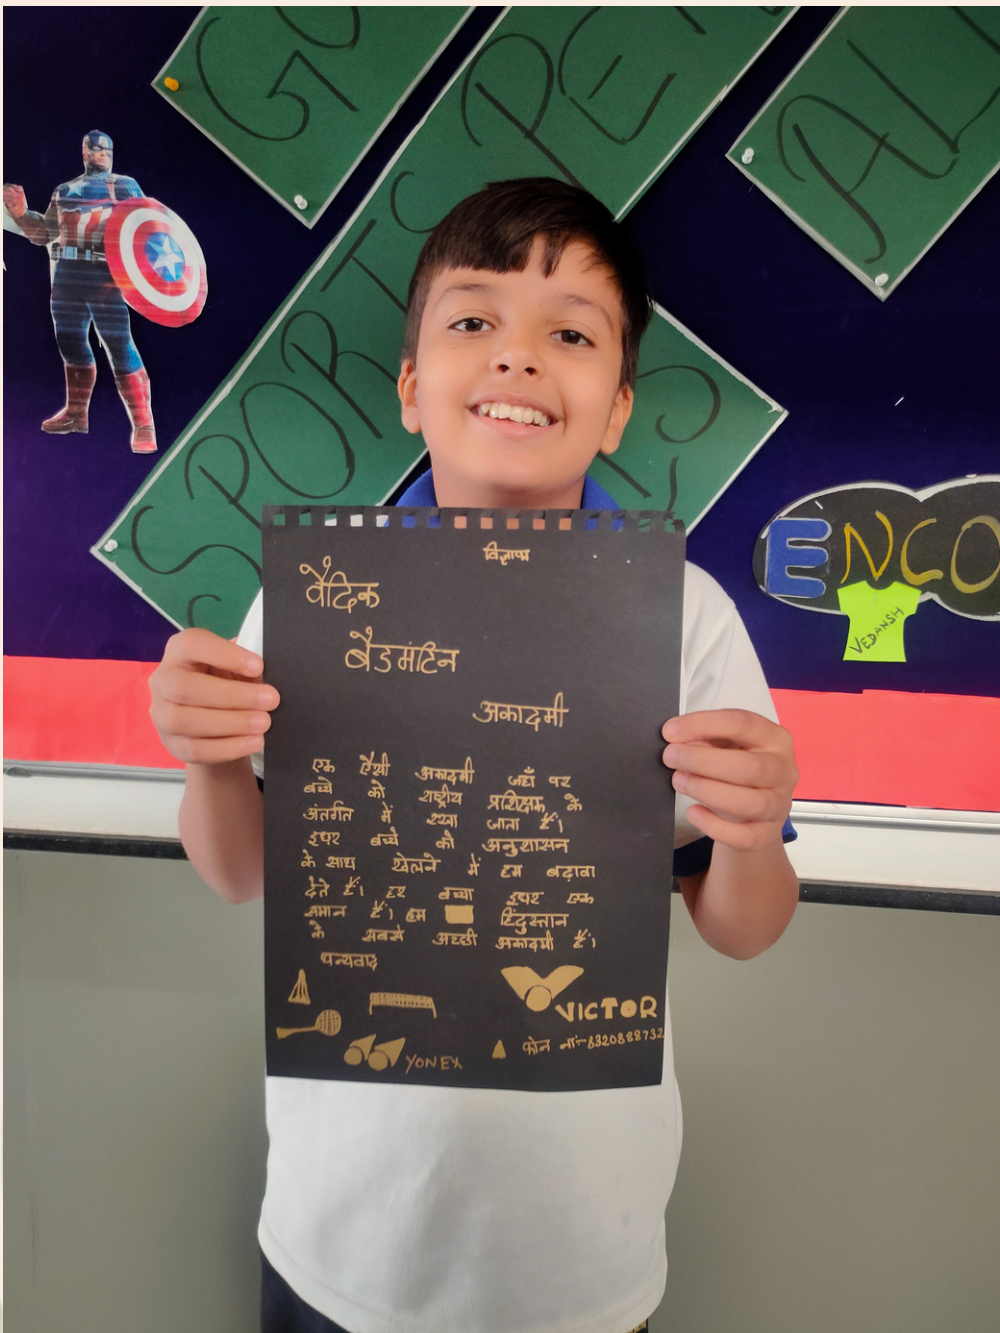 GO
SPORTS PE
ALL
S
ENCO
VEDANSH
विज्ञापन
वैदिक
बैडमंटिन
अकादमी
एक ऐसी अकादमी जहाँ पर
बच्चे को राष्ट्रीय प्रशिक्षक के
अंतर्गत में रखा जाता हैं।
इधर बच्चे को अनुशासन
के साथ खेलने में हम बढ़ावा
देते हैं। हर बच्चा इधर एक
समान हैं। हम हिंदुस्तान
के सबसे अच्छी अकादमी हैं।
धन्यवाद
VICTOR
YONEX
फोन नां:-8320888732